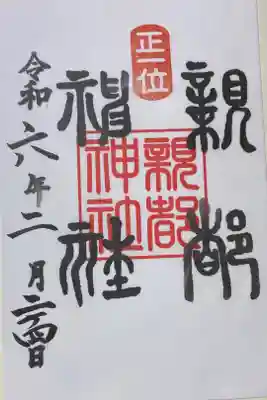 正一位
親都
神社
親都
神社
令和六年二月二四日